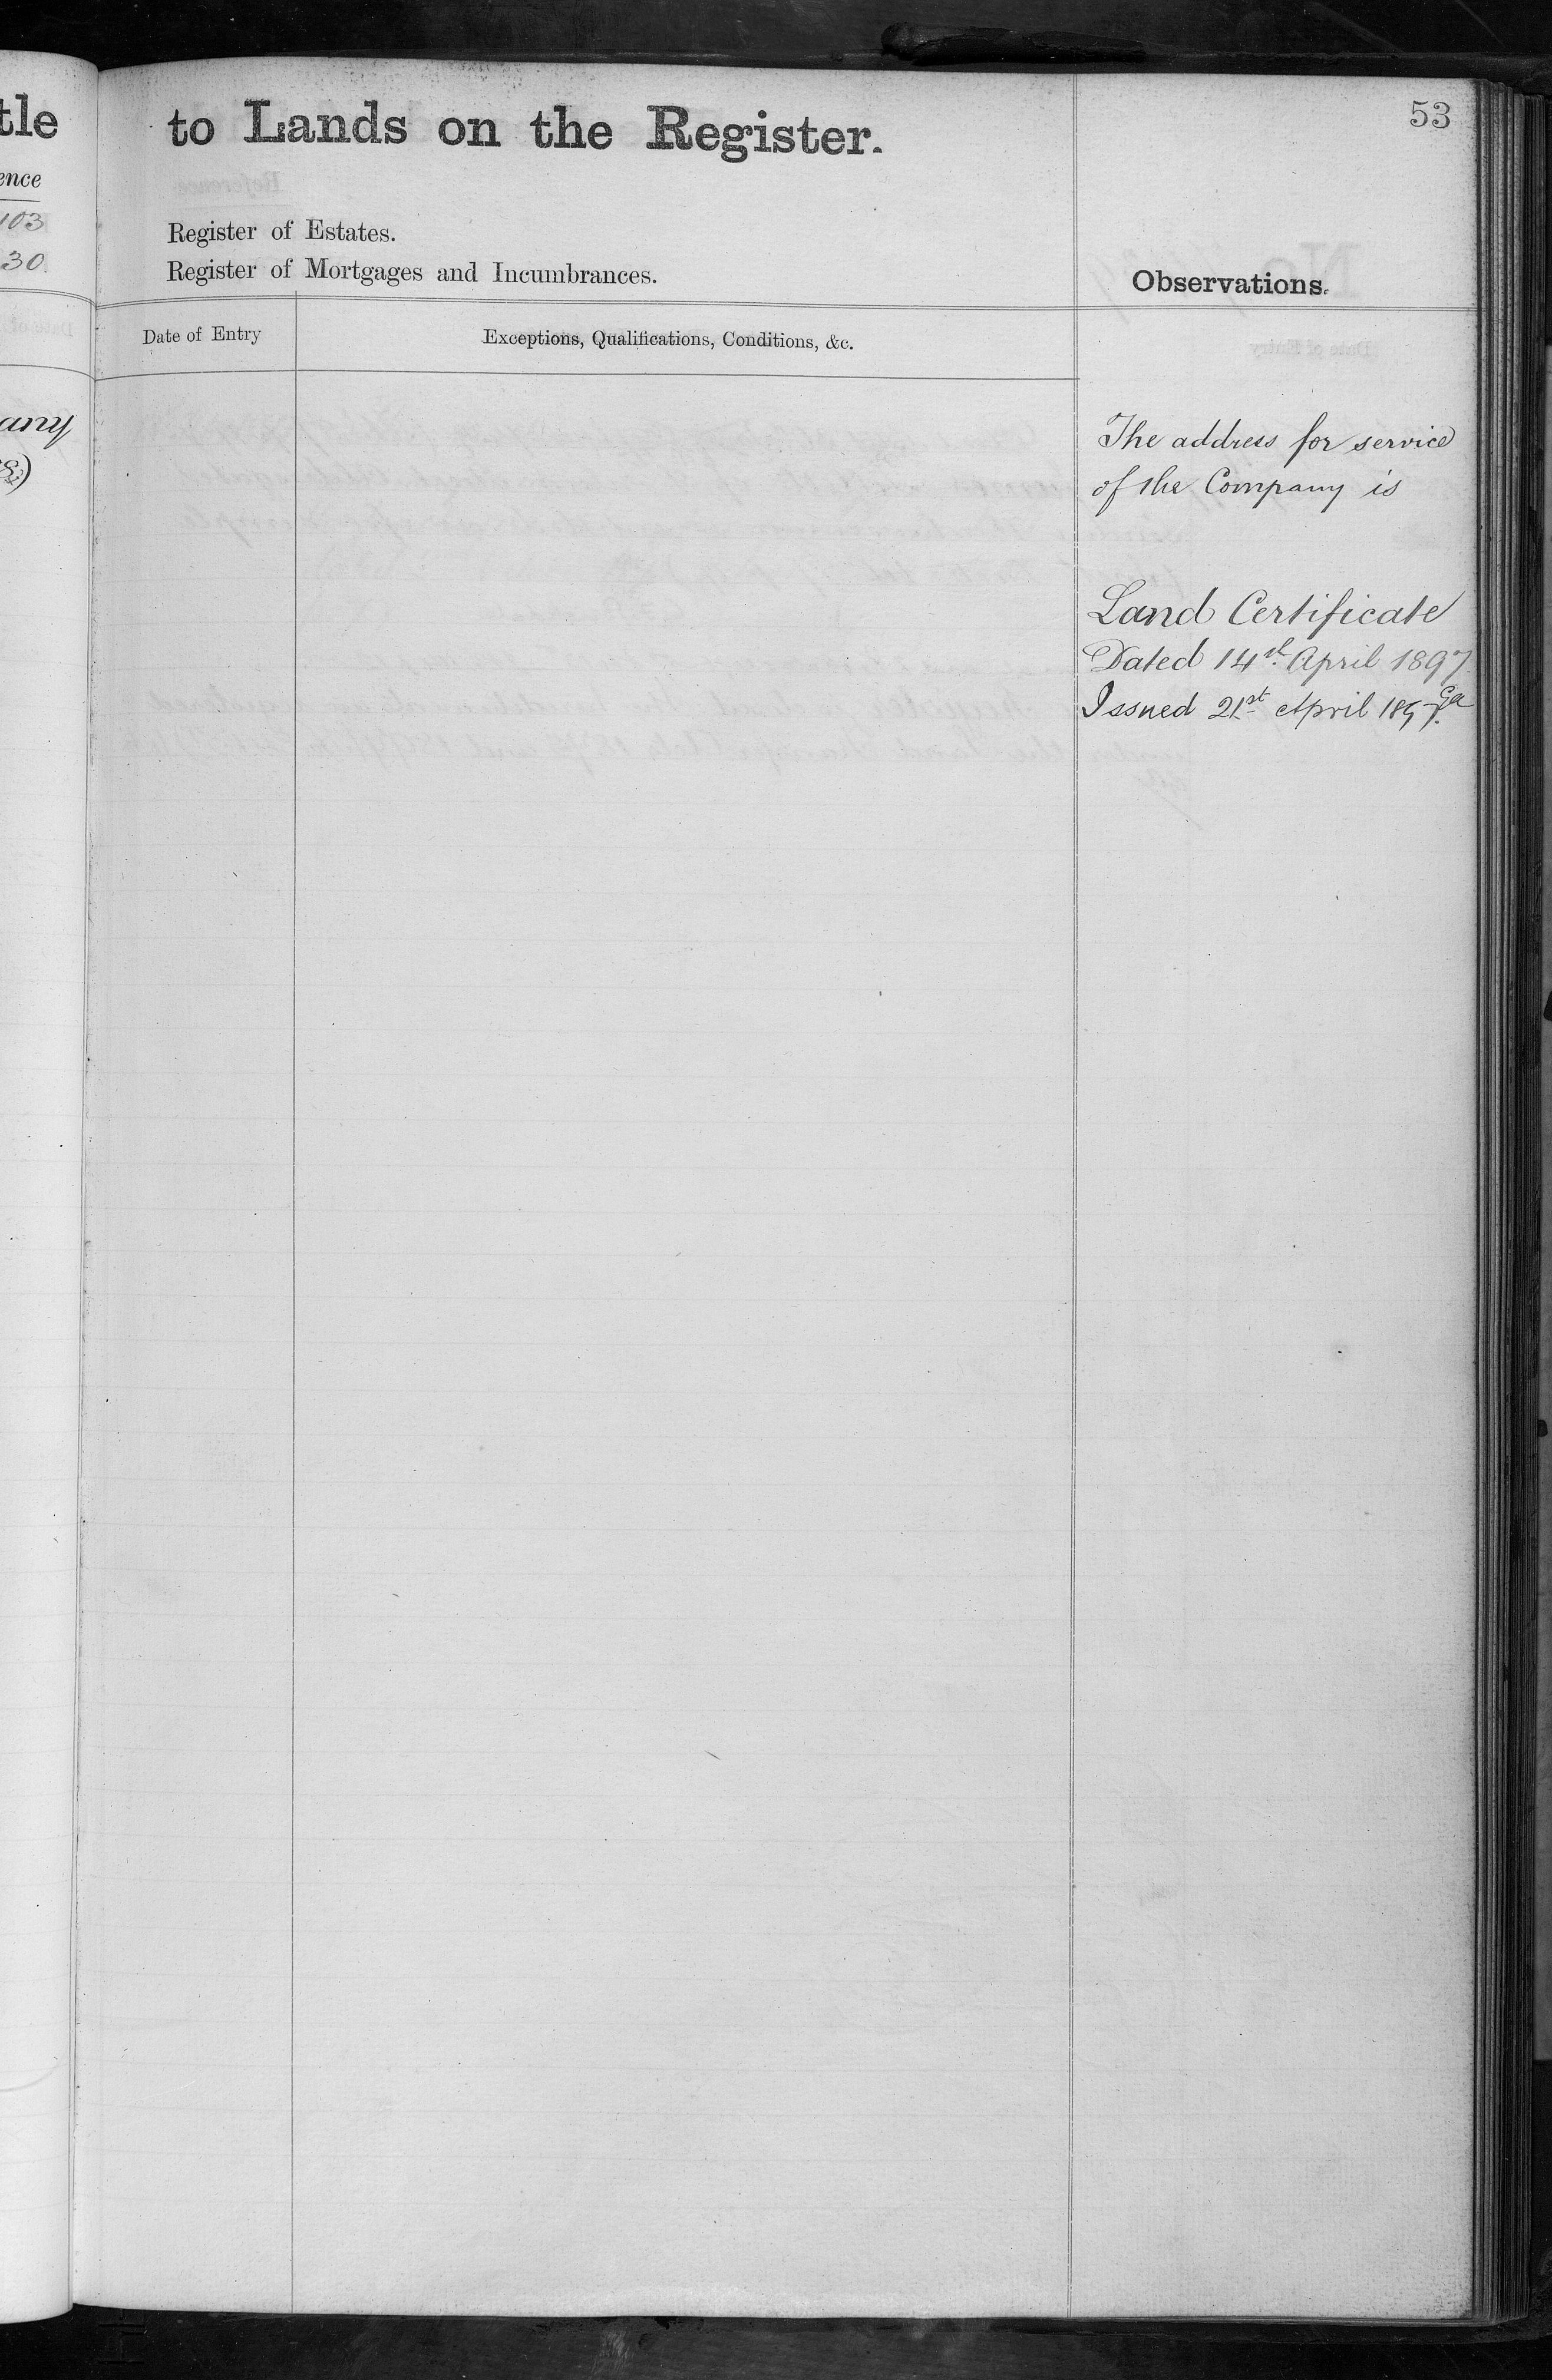 tle
ence
103
30.
any
53
to Lands on the Register.
Register of Estates.
Register of Mortgages and Incumbrances.
Observations.
Date of Entry
Exceptions, Qualifications, Conditions, &c.
The address for service
of the Company is
Land Certificate
Dated 14st April 1897.
Issued 21st April 1897.